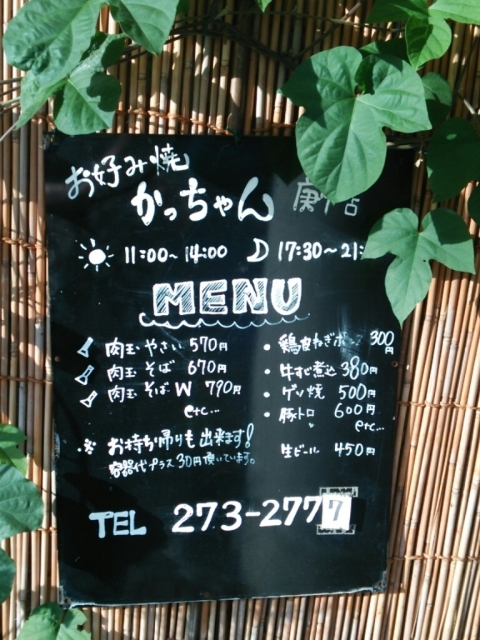 お好み焼
かっちゃん 庚 店
11:00~14:00 17:30~21:
MENU
肉玉 やさい 570円
肉玉 そば 670円
肉玉 そば W 790円
etc...
鶏皮ねぎポン 300円
牛すじ煮込 380円
ゲソ焼 500円
豚トロ 600円
etc...
お持ち帰りも出来ます!
容器代プラス30円頂いています。
生ビール 450円
TEL 273-2777